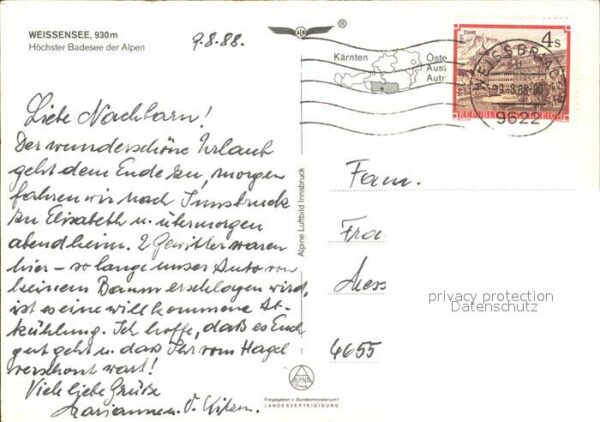 WEISSENSEE, 930m
Höchster Badesee der Alpen
9.8.88.
Liebe Nachbarn!
Der wunderschöne Urlaub
geht dem Ende zu, morgen
fahren wir nach Innsbruck
zu Elisabeth u. übermorgen
abend heim. 2 Gewitter waren
hier – so lange unser Auto von
keinem Baum erschlagen wird,
ist es eine willkommene Ab-
kühlung. Ich hoffe, daß es Euch
gut geht u. daß Ihr vom Hagel
verschont wart!
Viele liebe Grüße
Marianne u. V.
Alpine Luftbild Innsbruck
®
Kärnten
Öste
Aust
Autr
WEISSBRIACH
-9.8.88-00
9622
4 S
REPUBLIK ÖSTERREICH
Fam.
Fra
Mess
4655
privacy protection
Datenschutz
ALPINE
Freigegeben v. Bundesministerium f.
LANDESVERTEIDIGUNG